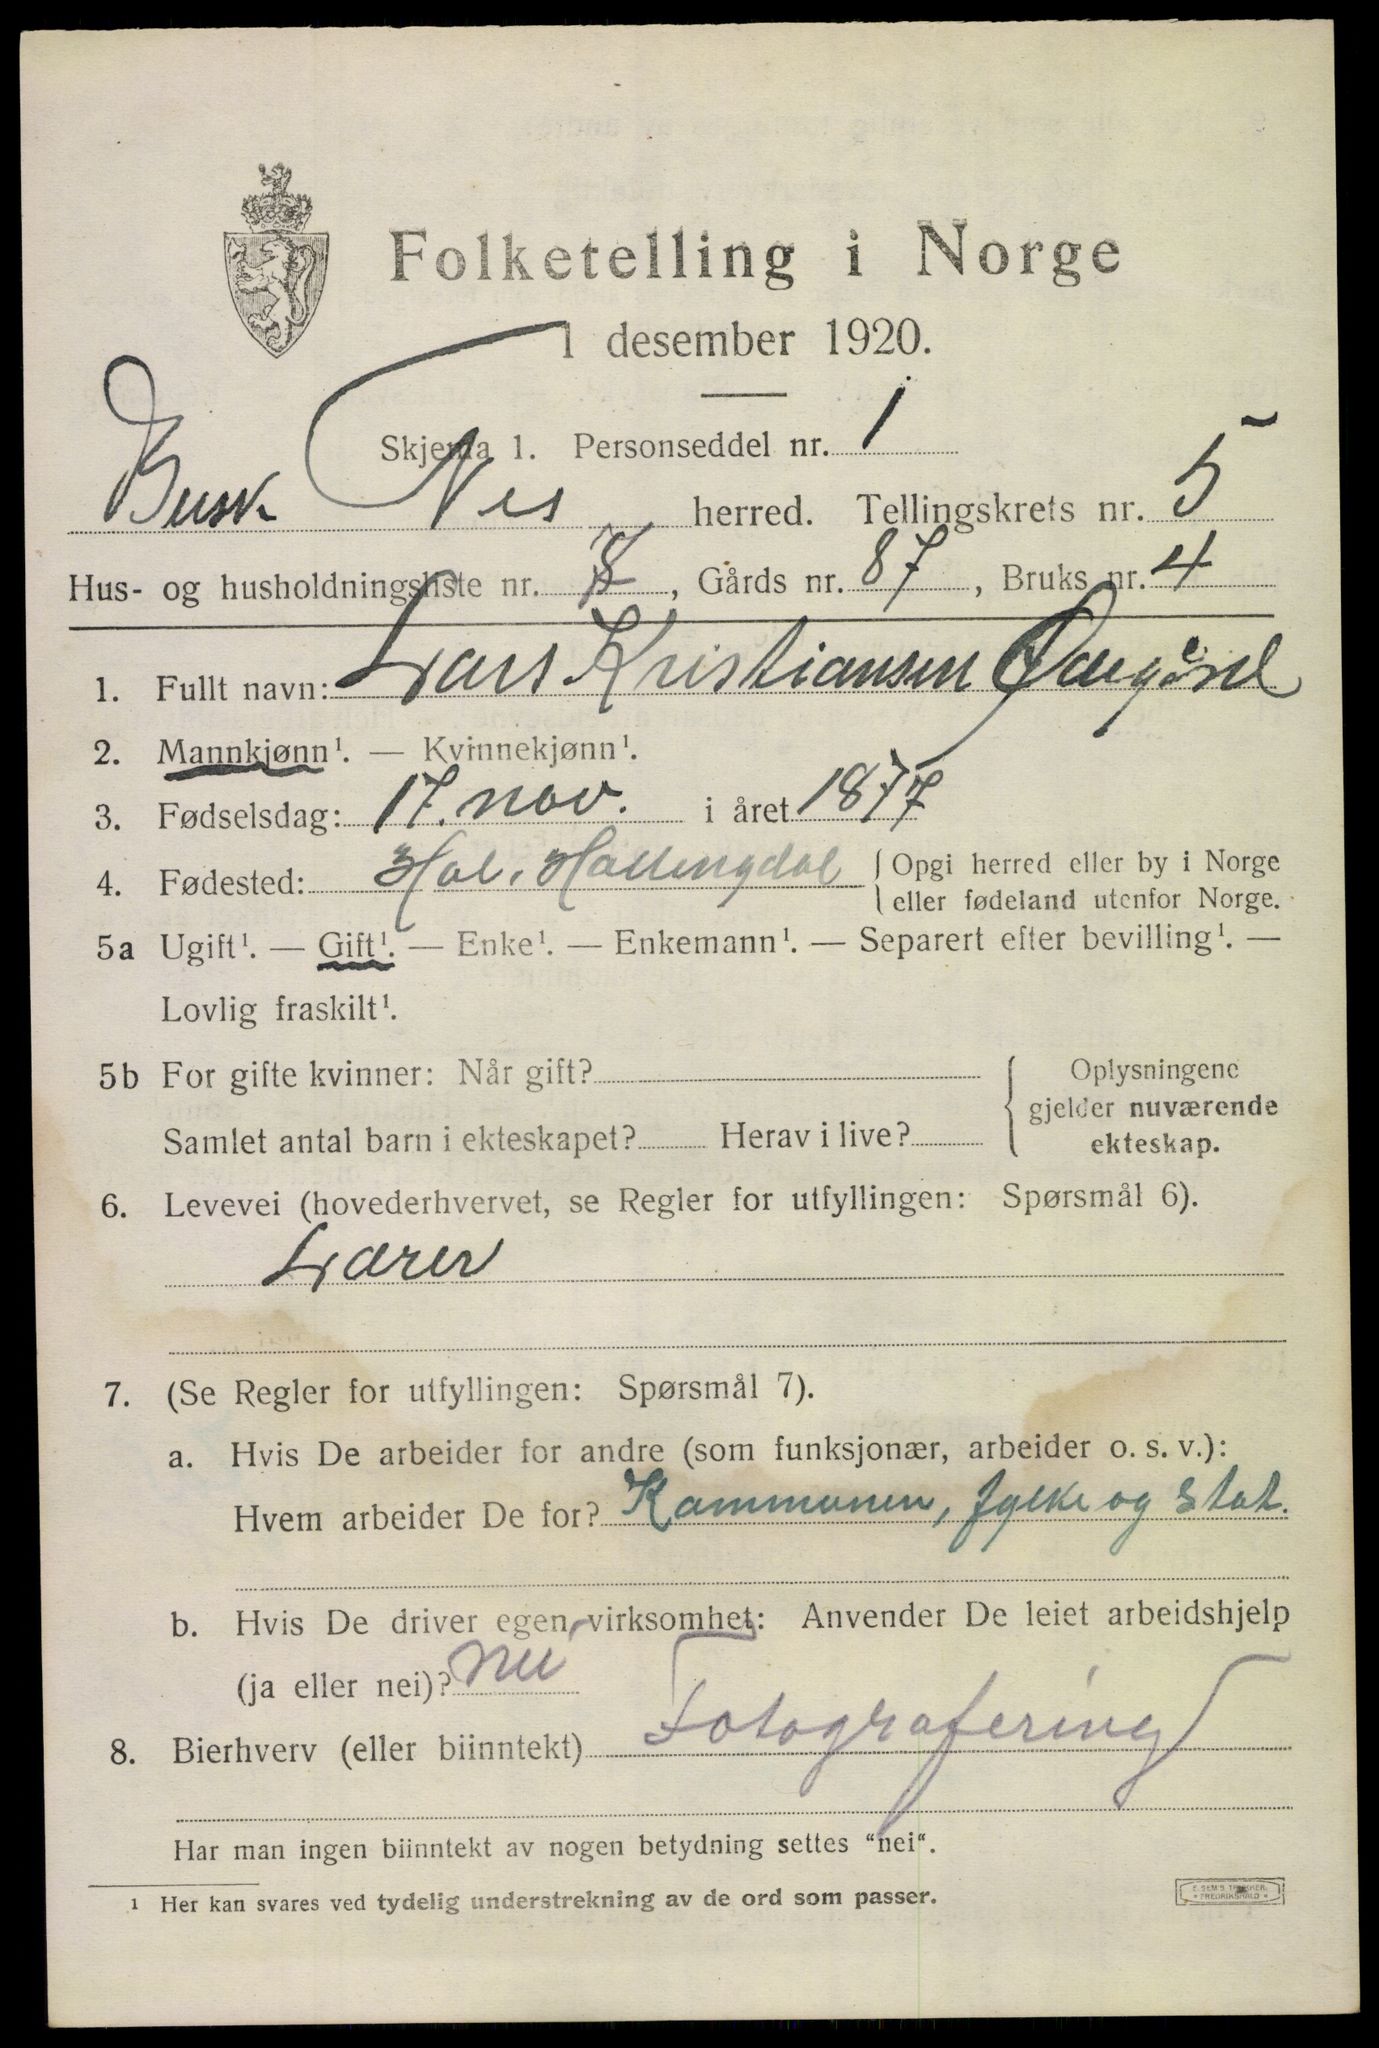 Folketelling i Norge
1 desember 1920.
Skjema 1. Personseddel nr. 1
Busk. Nes herred. Tellingskrets nr. 5
Hus- og husholdningsliste nr. , Gårds nr. 87, Bruks nr. 4
1. Fullt navn: Lars Kristiansen Ødegård
2. Mannkjønn¹. — Kvinnekjønn¹.
3. Fødselsdag: 17. nov. i året 1877
4. Fødested: Hol, Hallingdal { Opgi herred eller by i Norge
eller fødeland utenfor Norge.
5a Ugift¹. — Gift¹. — Enke¹. — Enkemann¹. — Separert efter bevilling¹. —
Lovlig fraskilt¹.
5b For gifte kvinner: Når gift? { Oplysningene
gjelder nuværende
Samlet antal barn i ekteskapet? Herav i live? ekteskap.
6. Levevei (hovederhvervet, se Regler for utfyllingen: Spørsmål 6).
Lærer
7. (Se Regler for utfyllingen: Spørsmål 7).
a. Hvis De arbeider for andre (som funksjonær, arbeider o. s. v.):
Hvem arbeider De for? Kommunen, fylke og stat.
b. Hvis De driver egen virksomhet: Anvender De leiet arbeidshjelp
(ja eller nei)? nei
8. Bierhverv (eller biinntekt) Fotografering
Har man ingen biinntekt av nogen betydning settes “nei“.
¹ Her kan svares ved tydelig understrekning av de ord som passer.
E. SEM'S TRYKKERI
FREDRIKSHALD